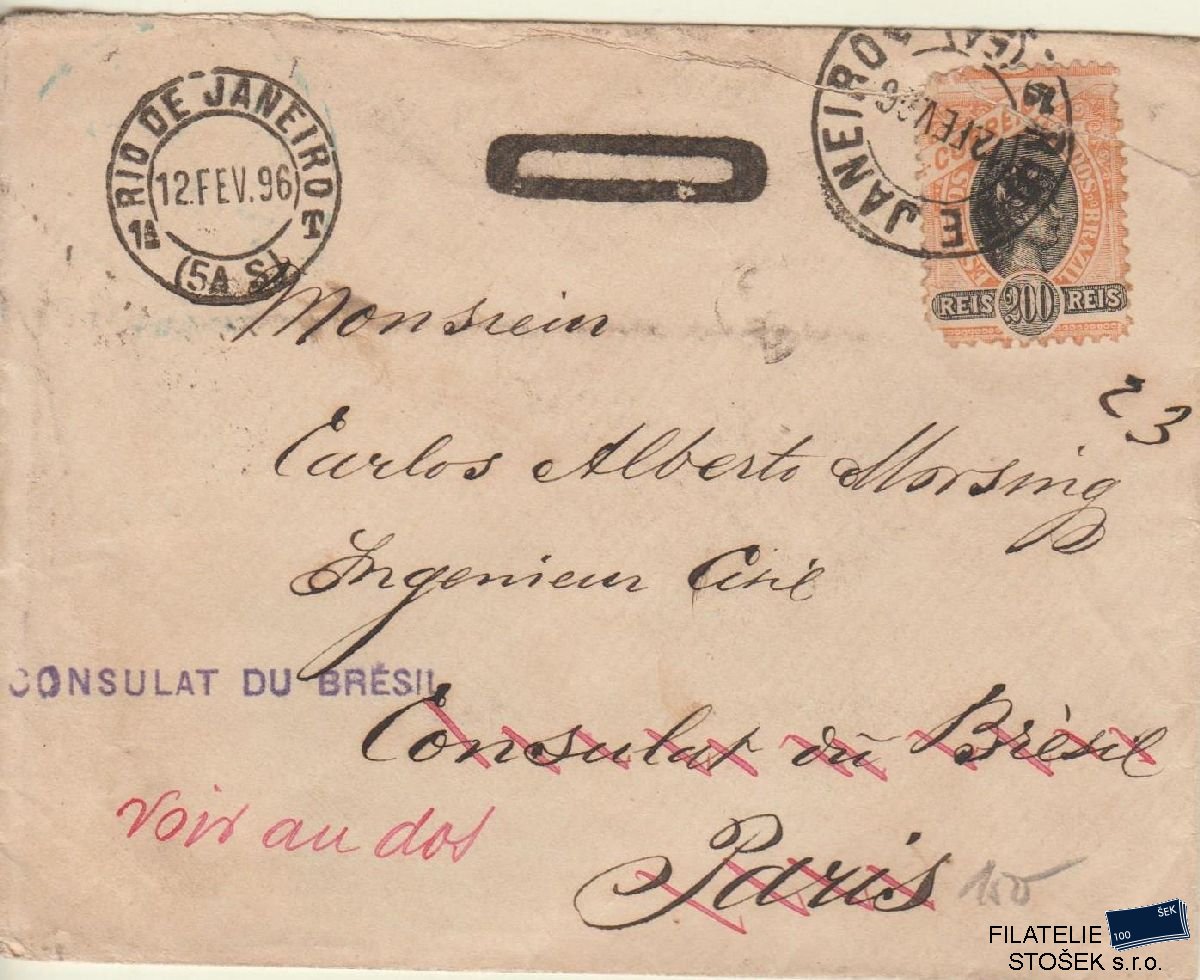 RIO DE JANEIRO
1ª T
12.FEV.96
(5A S)
E JANEIRO
12 FEV 96
DOS BRAZIL
REIS 200 REIS
23
Monsieur
Carlos Alberto Morsing
Ingenieur Civil
CONSULAT DU BRÉSIL
Consulat du Brèsil
voir au dos
Paris
150
ŠEK
100
FILATELIE
STOŠEK s.r.o.